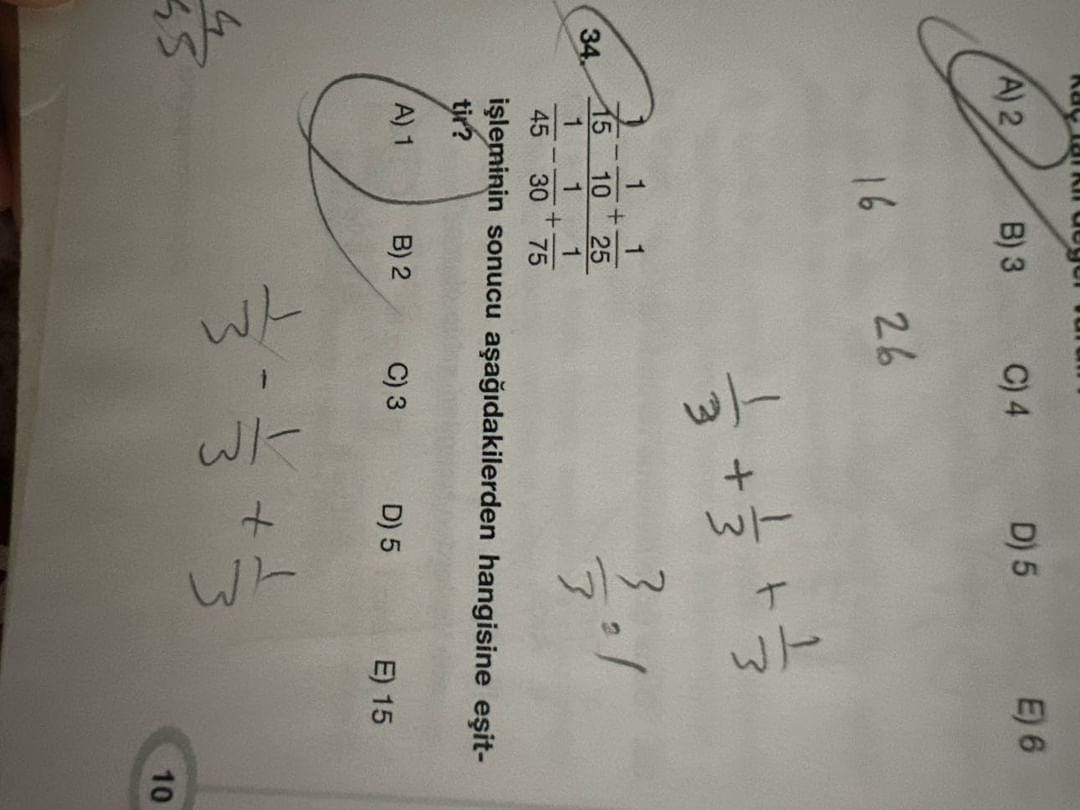 A) 2 B) 3 C) 4 D) 5 E) 6
16 26
1/3 + 1/3 + 1/3
3/3 = 1
34.
1/15 - 1/10 + 1/25
1/45 - 1/30 + 1/75
işleminin sonucu aşağıdakilerden hangisine eşit-
tir?
A) 1 B) 2 C) 3 D) 5 E) 15
1/3 - 1/3 + 1/3
10